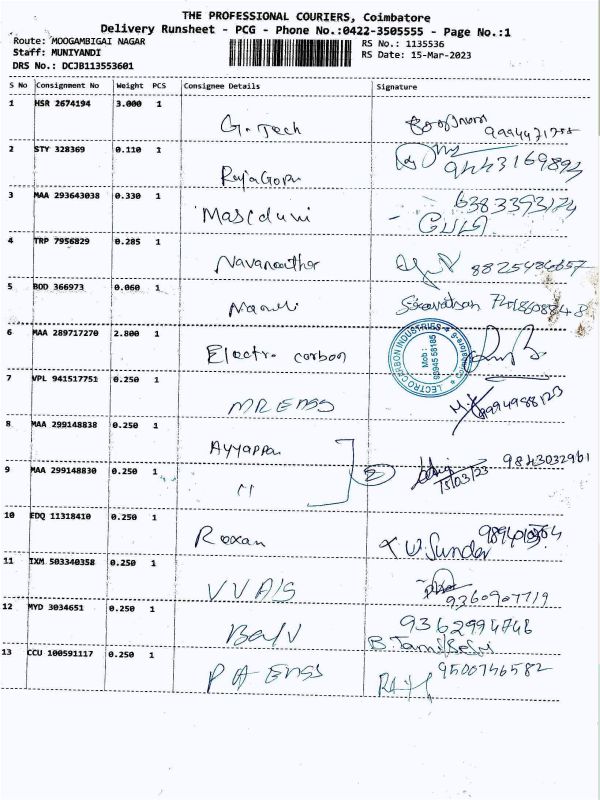 THE PROFESSIONAL COURIERS, Coimbatore
Delivery Runsheet - PCG - Phone No.:0422-3505555 - Page No.:1
Route: MOOGAMBIGAI NAGAR RS No.: 1135536
Staff: MUNIYANDI RS Date: 15-Mar-2023
DRS No.: DCJB113553601
S No Consignment No Weight PCS Consignee Details Signature
1 HSR 2674194 3.000 1
G-Tech
2 STY 328369 0.110 1
RajaGopu 9443169894
3 MAA 293643038 0.330 1
6383393124
4 TRP 7956829 0.285 1
8825486657
5 BOD 366973 0.060 1
6 MAA 289717270 2.800 1
Electro carbon
ELECTRO CARBON INDUSTRIES
Mob: 98945 58185
7 VPL 941517751 0.250 1
MR ENGG
8 MAA 299148838 0.250 1
Ayyappan 9843032961
9 MAA 299148830 0.250 1
11 2 15/03/23
10 EDQ 11318410 0.250 1
Roxan W. Sundar
11 IXM 503340358 0.250 1
9360907719
12 MYD 3034651 0.250 1
9362994746
B. TamilSelvi
13 CCU 100591117 0.250 1
P A ENGG 9500746582